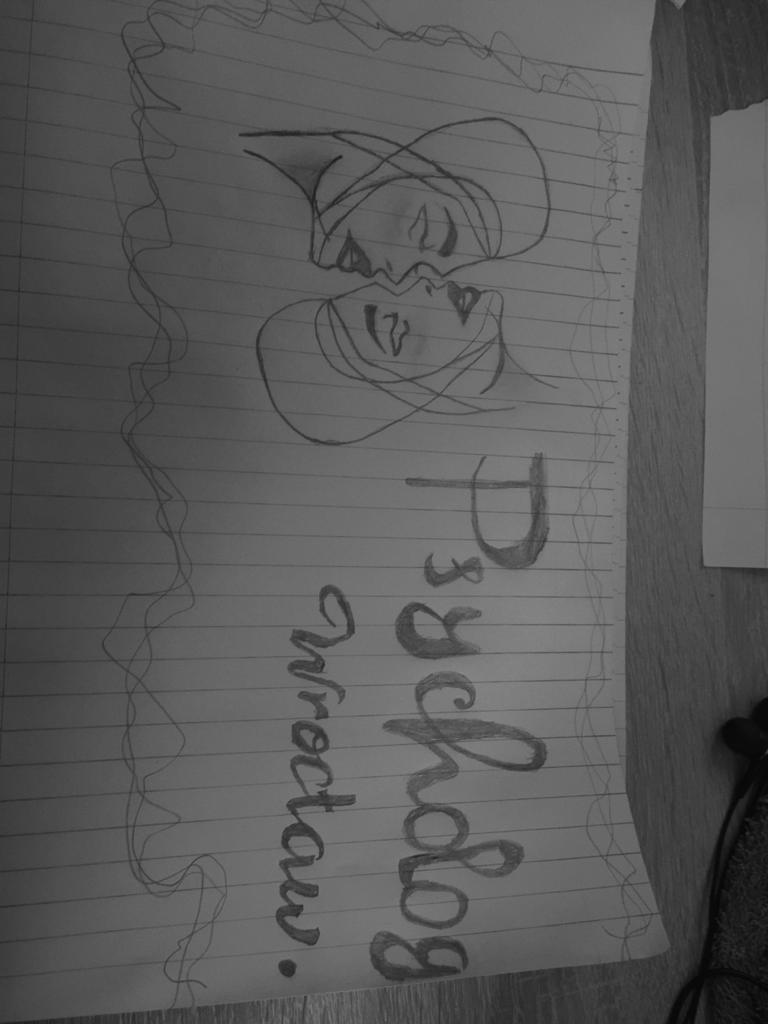 Psycholog
Wrocław.